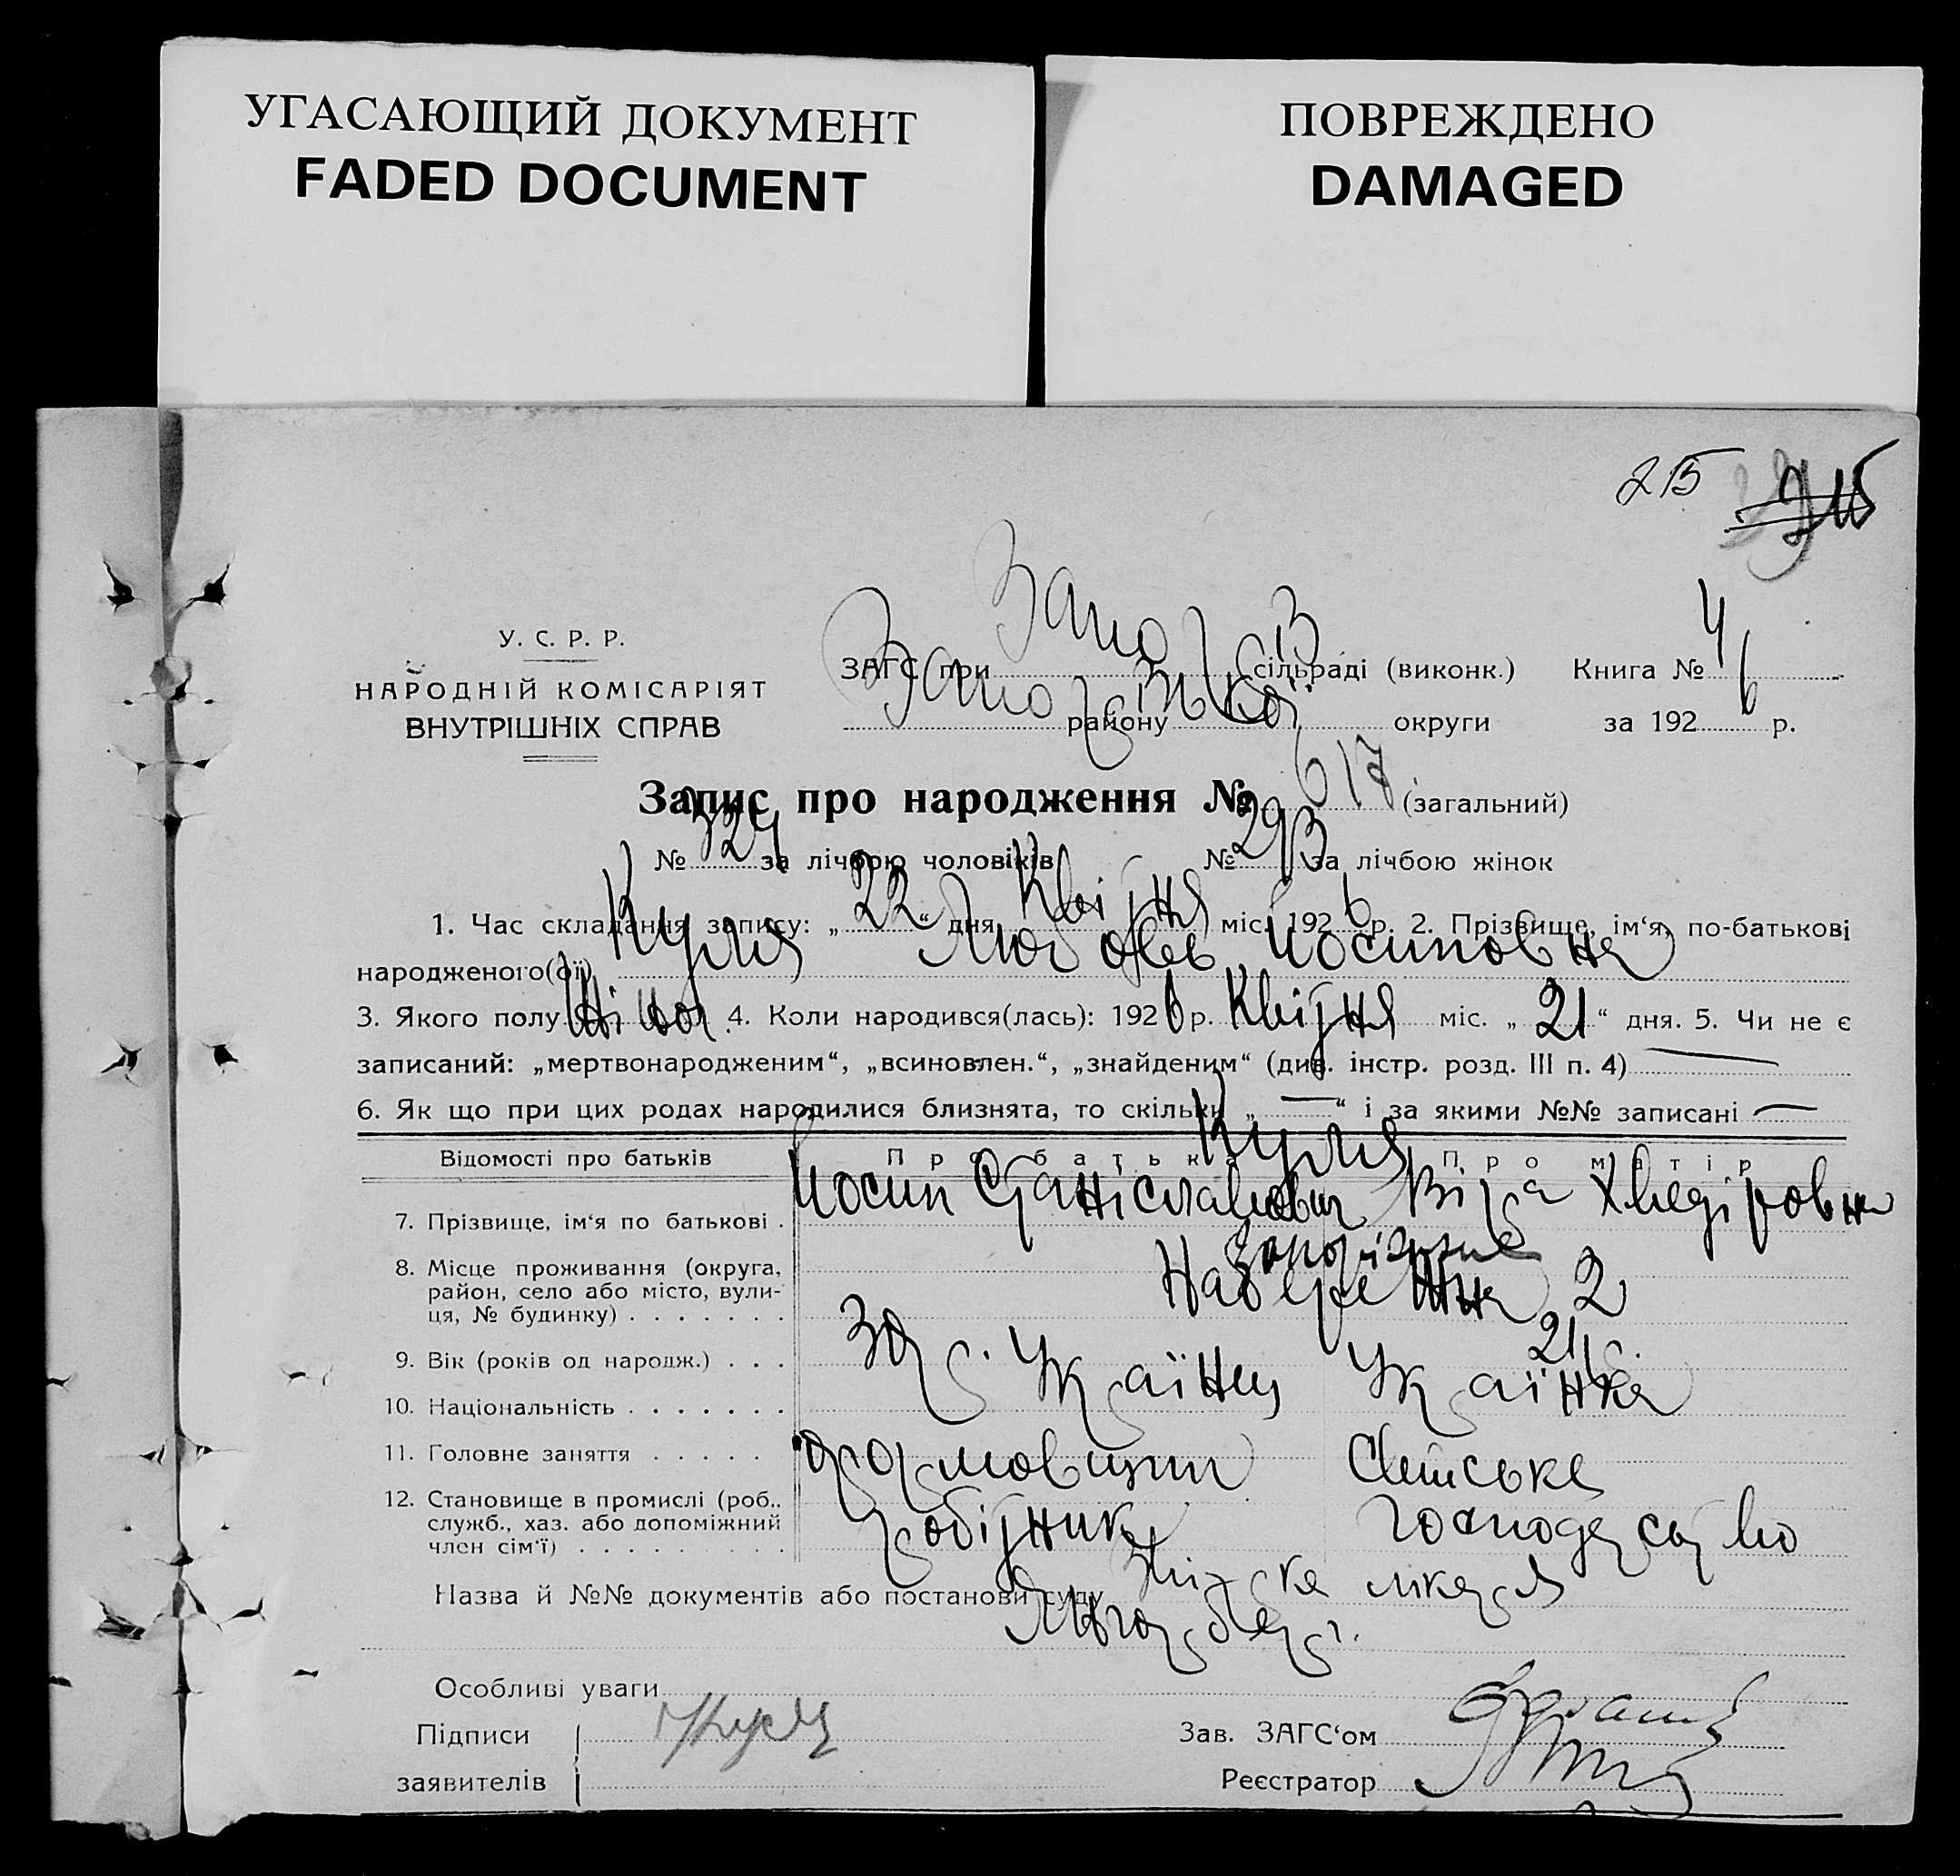 УГАСАЮЩИЙ ДОКУМЕНТ
FADED DOCUMENT
ПОВРЕЖДЕНО
DAMAGED
215
У. С. Р. Р.
НАРОДНІЙ КОМІСАРІЯТ
ВНУТРІШНІХ СПРАВ
ЗАГС при сільраді (виконк.) Книга № 4
району округи за 1926 р.
Запис про народження № 617 (загальний)
№ 324 за лічбою чоловіків № 293 за лічбою жінок
1. Час складання запису: „22“ дня Квітня міс. 1926 р. 2. Прізвище, ім‘я, по-батькові
народженого(ої) Куля Любовь Йосиповна
3. Якого полу Жіночої. 4. Коли народився(лась): 1926 р. Квітня міс. „21“ дня. 5. Чи не є
записаний: „мертвонародженим“, „всиновлен.“, „знайденим“ (див. інстр. розд. III п. 4) —
6. Як що при цих родах народилися близнята, то скільки „—“ і за якими №№ записані —
Відомості про батьків Про батька Про матір
Куля
7. Прізвище, ім‘я по батькові . Йосип Станіславович Віра Хведіровна
8. Місце проживання (округа, район, село або місто, вулиця, № будинку) . . . . . . . Запоріжжя
Набережна 2
9. Вік (років од народж.) . . . 30 р. 21 р.
10. Національність . . . . . . . Українець Українка
11. Головне заняття . . . . . Сельське
12. Становище в промислі (роб., служб., хаз. або допоміжний член сім‘ї) . . . . . . . . . робітник господарство
Назва й №№ документів або постанови суду лікаря
Особливі уваги
Підписи
заявителів
Зав. ЗАГС‘ом
Реєстратор